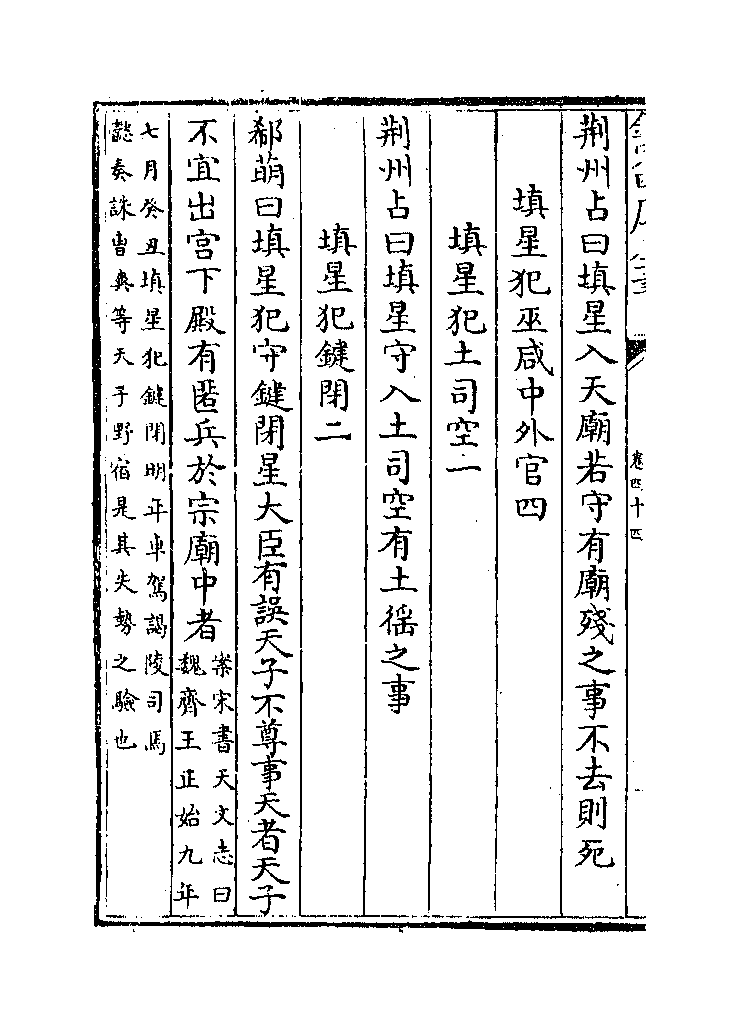 卷四十四
荆州占曰填星入天廟若守有廟殘之事不去則死
填星犯巫咸中外官四
填星犯土司空一
荆州占曰填星守入土司空有土徭之事
填星犯鍵閉二
郗萌曰填星犯守鍵閉星大臣有誤天子不尊事天者天子
不宜出宫下殿有匿兵於宗廟中者
案宋書天文志曰
魏齊王正始九年
七月癸丑填星犯鍵閉明年車駕謁陵司馬
懿奏誅曹爽等天子野宿是其失勢之驗也